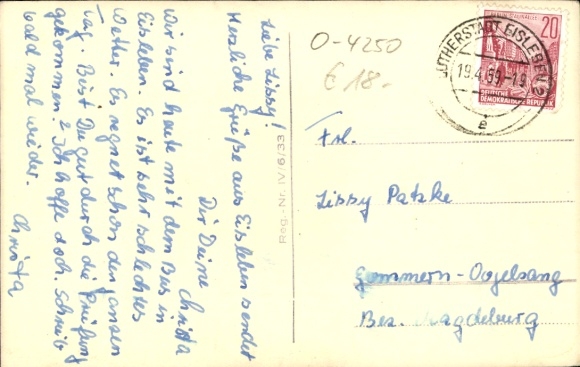 Liebe Lissy!
Herzliche Grüße aus Eisleben sendet
Dir Deine
Christa
Wir sind heute mit dem Bus in
Eisleben. Es ist sehr schlechtes
Wetter. Es regnet schon den ganzen
Tag. Bist Du gut durch die Prüfung
gekommen? Ich hoffe doch. Schreib
bald mal wieder.
Christa
Reg.-Nr. IV/9/33
O-4250
€ 18.-
20
DEUTSCHE
DEMOKRATISCHE REPUBLIK
LUTHERSTADT EISLEBEN 2
19.4.59
Frl.
Lissy Patzke
Gommern-Vogelsang
Bez. Magdeburg